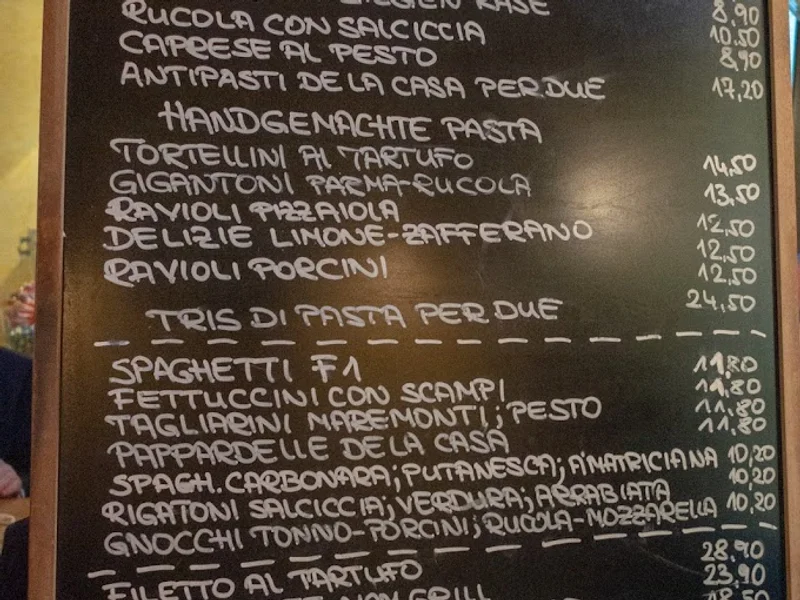 KÄSE 8.90
RUCOLA CON SALCICCIA 10.50
CAPRESE AL PESTO 8,90
ANTIPASTI DE LA CASA PER DUE 17,20
HANDGEMACHTE PASTA
TORTELLINI AL TARTUFO 14,50
GIGANTONI PARMA-RUCOLA 13,50
RAVIOLI PIZZAIOLA 12,50
DELIZIE LIMONE-ZAFFERANO 12,50
RAVIOLI PORCINI 12,50
TRIS DI PASTA PER DUE 24,50
SPAGHETTI F1 11,80
FETTUCCINI CON SCAMPI 11,80
TAGLIARINI MAREMONTI; PESTO 11,80
PAPPARDELLE DE LA CASA 11,80
SPAGH. CARBONARA; PUTANESCA; AMATRICIANA 10,20
RIGATONI SALCICCIA; VERDURA; ARRABIATA 10,20
GNOCCHI TONNO-PORCINI; RUCOLA-MOZZARELLA 10,20
FILETTO AL TARTUFO 28.90
23,90
GRILL 18,50